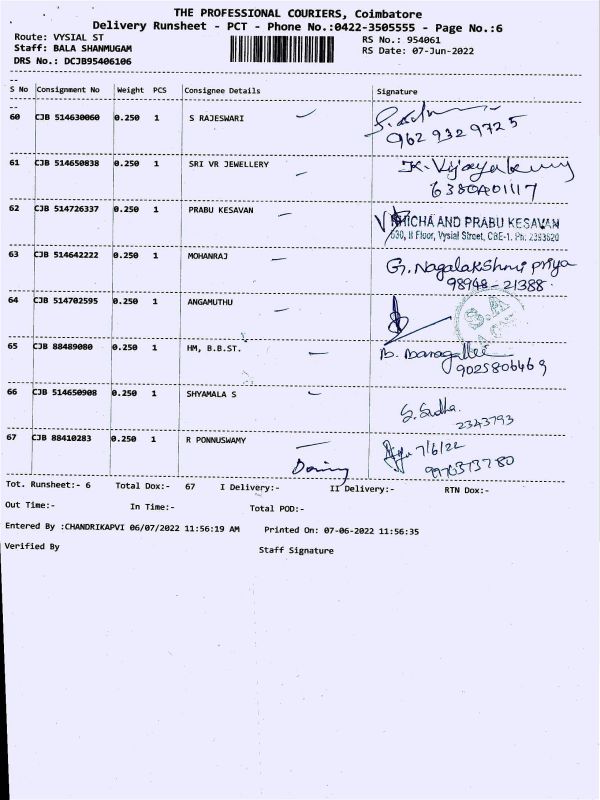 THE PROFESSIONAL COURIERS, Coimbatore
Delivery Runsheet - PCT - Phone No.:0422-3505555 - Page No.:6
Route: VYSIAL ST
RS No.: 954061
Staff: BALA SHANMUGAM
RS Date: 07-Jun-2022
DRS No.: DCJB95406106
S No Consignment No Weight PCS Consignee Details Signature
60 CJB 514630060 0.250 1 S RAJESWARI
962 932 9725
61 CJB 514650838 0.250 1 SRI VR JEWELLERY K. Vijayakumar
6380401117
62 CJB 514726337 0.250 1 PRABU KESAVAN AND PRABU KESAVAN
II Floor, Vysial Street, CBE-1. Ph: 2393620
63 CJB 514642222 0.250 1 MOHANRAJ G. Nagalakshmi priya
98948-21388
64 CJB 514702595 0.250 1 ANGAMUTHU
S.A
65 CJB 88489080 0.250 1 HM, B.B.ST.
9025806469
66 CJB 514650908 0.250 1 SHYAMALA S S. Sudha
2343793
67 CJB 88410283 0.250 1 R PONNUSWAMY 7/6/22
9976373780
Tot. Runsheet:- 6 Total Dox:- 67 I Delivery:- II Delivery:- RTN Dox:-
Out Time:- In Time:- Total POD:-
Entered By :CHANDRIKAPVI 06/07/2022 11:56:19 AM Printed On: 07-06-2022 11:56:35
Verified By Staff Signature